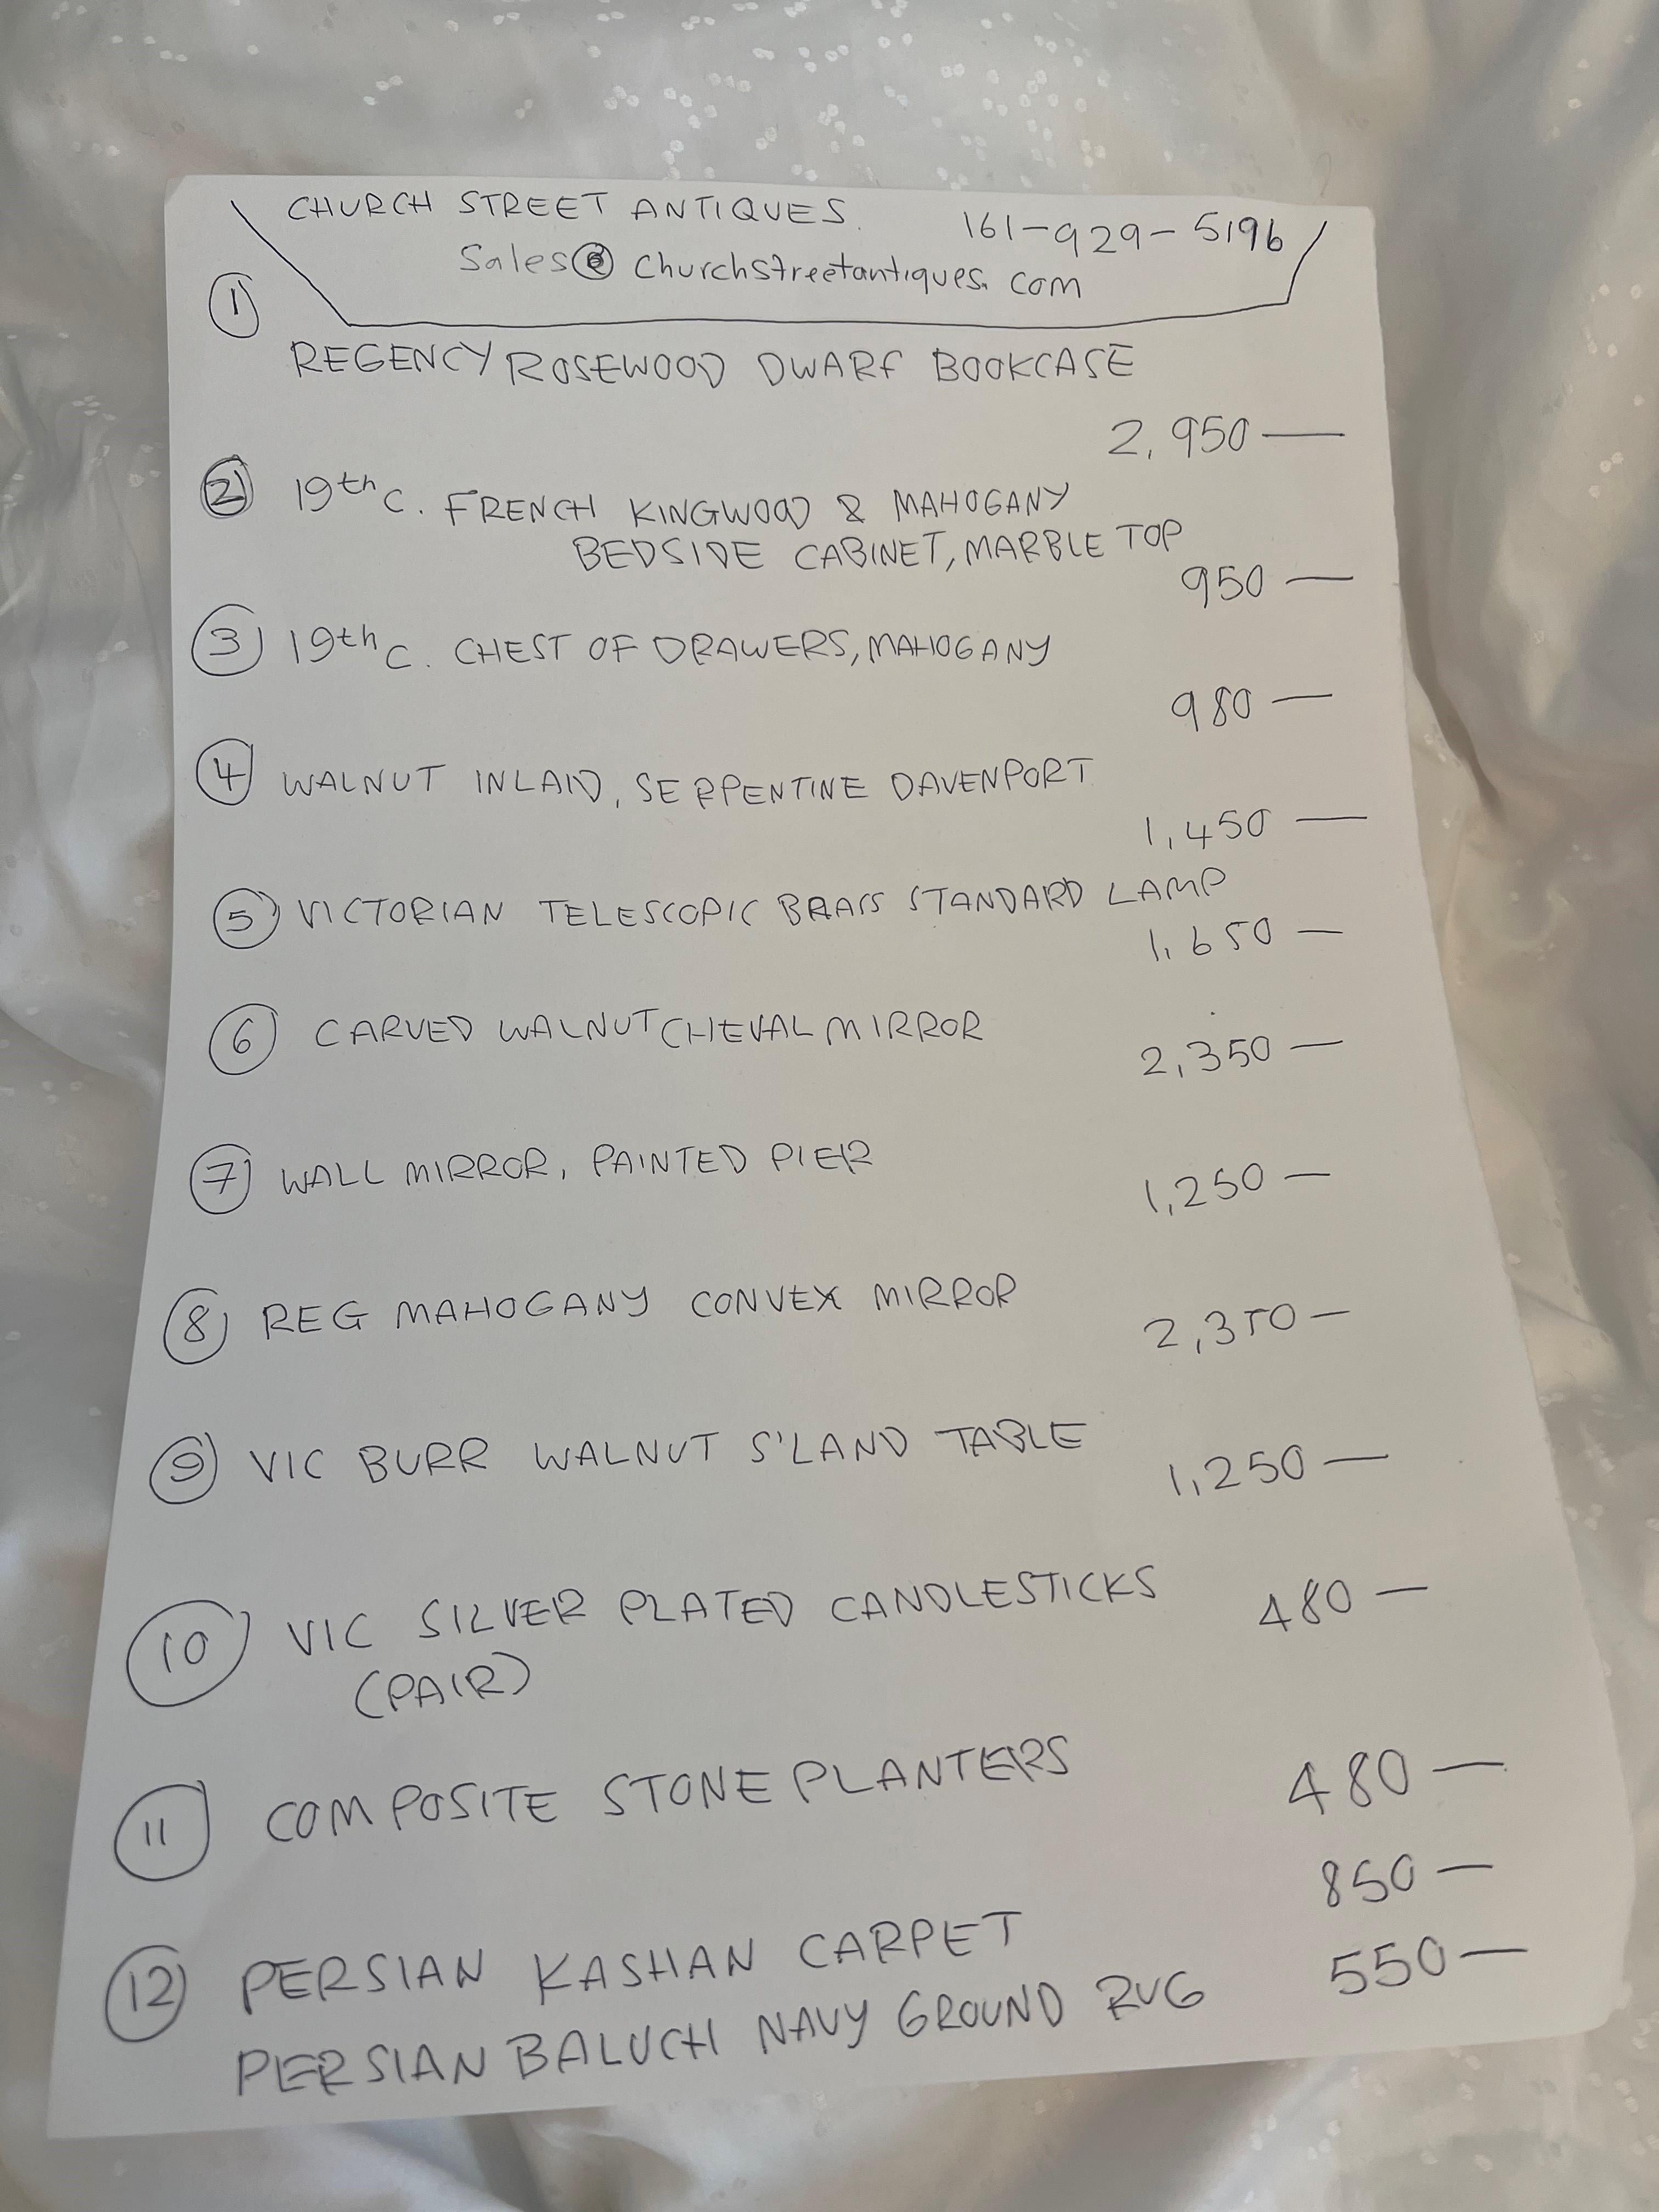 CHURCH STREET ANTIQUES. 161-929-5196
Sales@churchstreetantiques.com
1
REGENCY ROSEWOOD DWARF BOOKCASE
2,950 —
2 19th C. FRENCH KINGWOOD & MAHOGANY
BEDSIDE CABINET, MARBLE TOP
950 —
3 19th C. CHEST OF DRAWERS, MAHOGANY
980 —
4 WALNUT INLAID, SERPENTINE DAVENPORT
1,450 —
5 VICTORIAN TELESCOPIC BRASS STANDARD LAMP
1,650 —
6 CARVED WALNUT CHEVAL MIRROR 2,350 —
7 WALL MIRROR, PAINTED PIER 1,250 —
8 REG MAHOGANY CONVEX MIRROR 2,350 —
9 VIC BURR WALNUT S'LAND TABLE 1,250 —
10 VIC SILVER PLATED CANDLESTICKS 480 —
(PAIR)
11 COMPOSITE STONE PLANTERS 480 —
12 PERSIAN KASHAN CARPET 850 —
PERSIAN BALUCH NAVY GROUND RUG 550 —